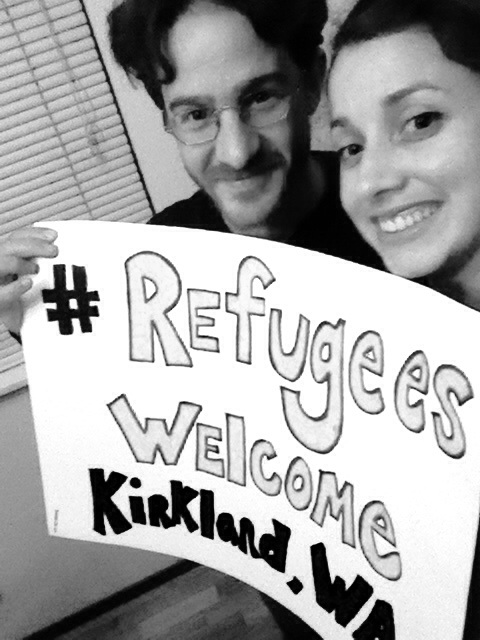 # Refugees
Welcome
Kirkland, WA